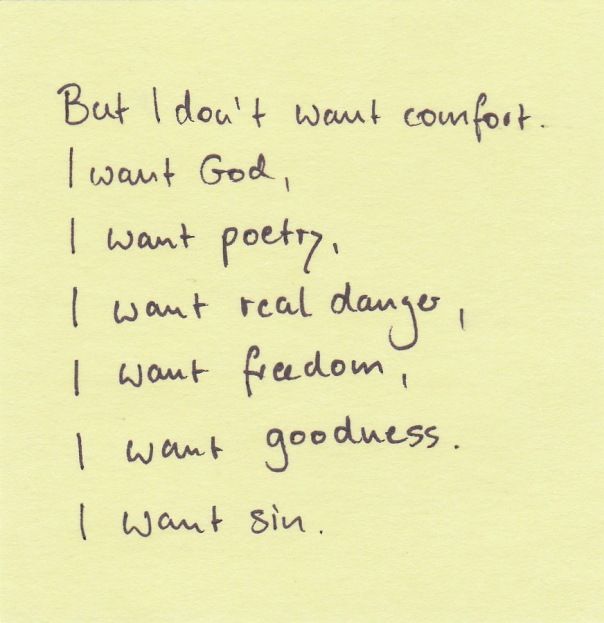 But I don't want comfort.
I want God,
I want poetry,
I want real danger,
I want freedom,
I want goodness.
I want sin.